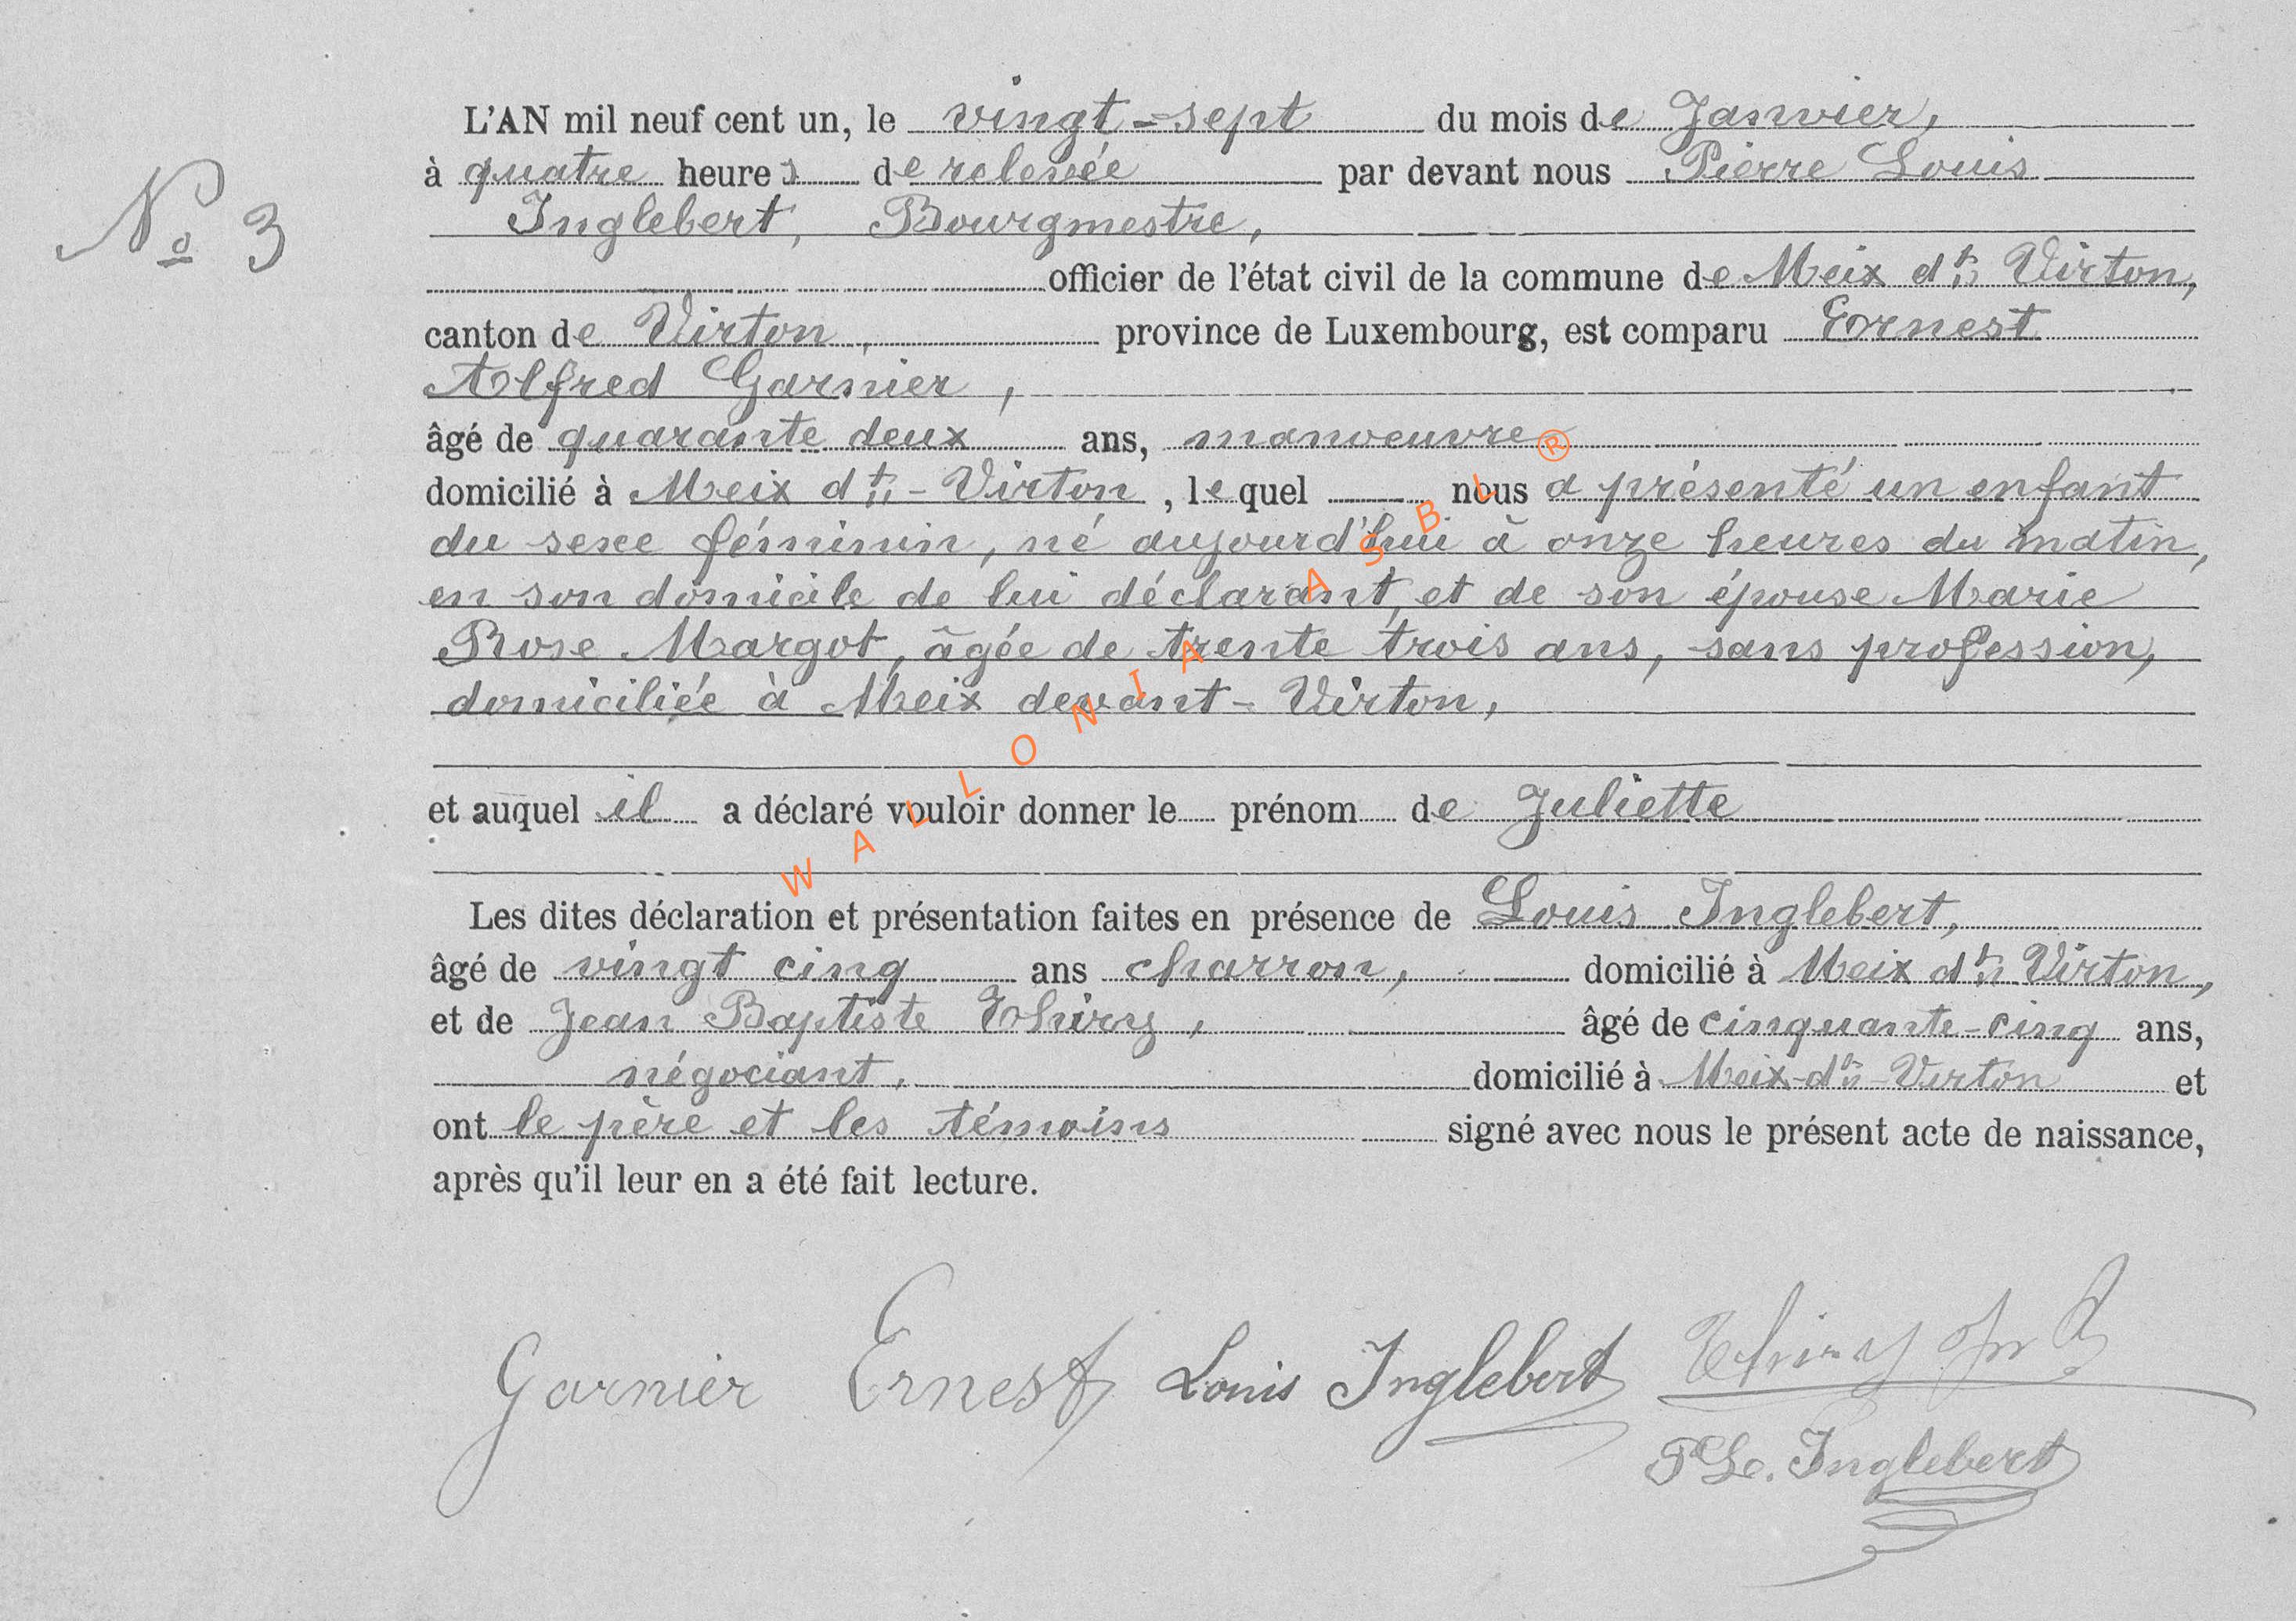 L'AN mil neuf cent un, le vingt-sept du mois de Janvier,
à quatre heures de relevée par devant nous Pierre Louis
No 3
Inglebert, Bourgmestre,
officier de l'état civil de la commune de Meix dt Virton,
canton de Virton, province de Luxembourg, est comparu Ernest
Alfred Garnier,
âgé de quarante deux ans, manoeuvre
domicilié à Meix dt - Virton, le quel nous a présenté un enfant
du sexe féminin, né aujourd'hui à onze heures du matin,
en son domicile de lui déclarant, et de son épouse Marie
Rose Margot, âgée de trente trois ans, sans profession,
domiciliée à Meix devant-Virton,
et auquel il a déclaré vouloir donner le prénom de Juliette
Les dites déclaration et présentation faites en présence de Louis Inglebert,
âgé de vingt cinq ans charron, domicilié à Meix dt Virton,
et de Jean Baptiste Thiry, âgé de cinquante-cinq ans,
négociant, domicilié à Meix-dt-Virton et
ont le père et les témoins signé avec nous le présent acte de naissance,
après qu'il leur en a été fait lecture.
Garnier Ernest Louis Inglebert Thiry Jn B
P Ls. Inglebert
WALLONIA ASBL ®